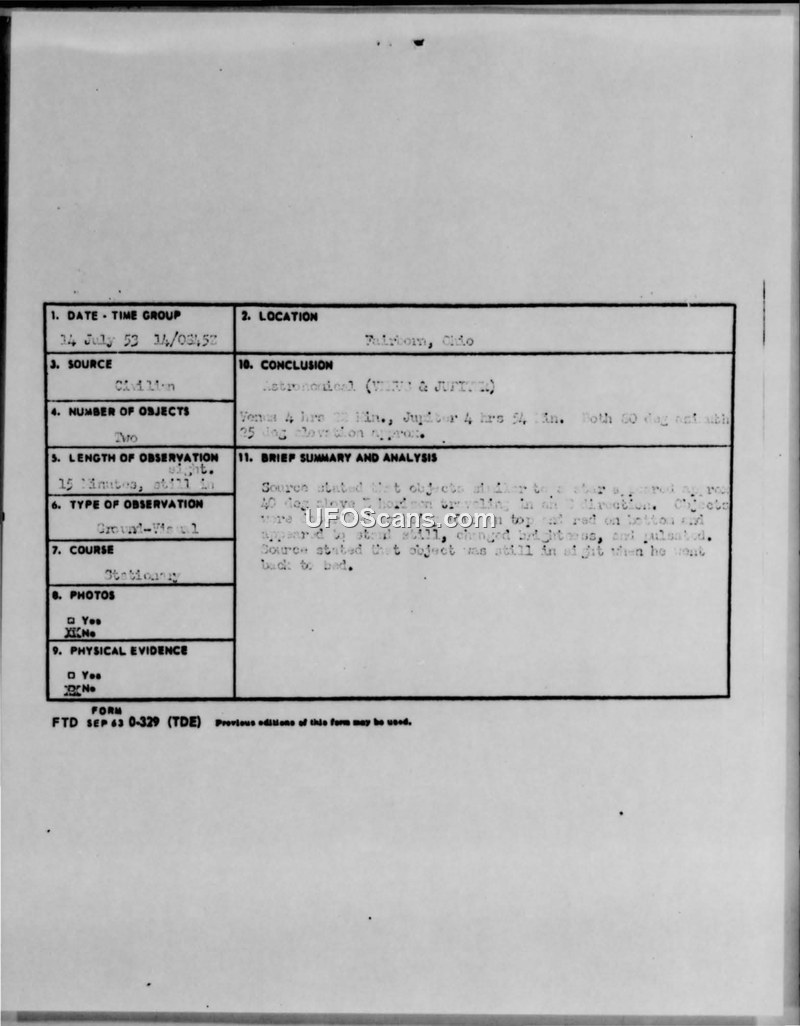 1. DATE - TIME GROUP
14 July 53 14/0845Z
2. LOCATION
Fairborn, Ohio
3. SOURCE
Civilian
10. CONCLUSION
Astronomical (VENUS & JUPITER)
4. NUMBER OF OBJECTS
Two
Venus 4 hrs Min., Jupiter 4 hrs 54 Min. Both 80 deg azimuth
25 deg elevation approx.
5. LENGTH OF OBSERVATION
sight.
15 Minutes, still in
11. BRIEF SUMMARY AND ANALYSIS
Source stated that objects similar to a star appeared approx
40 deg above horizon traveling in an E direction. Objects
were on top and red on bottom and
appeared to stand still, changed brightness, and pulsated.
Source stated that object was still in sight when he went
back to bed.
6. TYPE OF OBSERVATION
Ground-Visual
7. COURSE
Stationary
8. PHOTOS
□ Yes
XX No
9. PHYSICAL EVIDENCE
□ Yes
XX No
FORM
FTD SEP 63 0-329 (TDE) Previous editions of this form may be used.
UFOScans.com